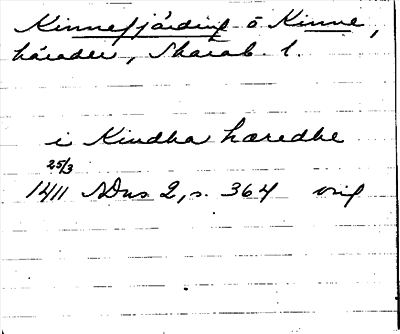 Kinnefjärding o Kinne,
härader, Skarab. l.
i Kindha hæredhe
25/3
1411 SDns 2, s. 364 orig